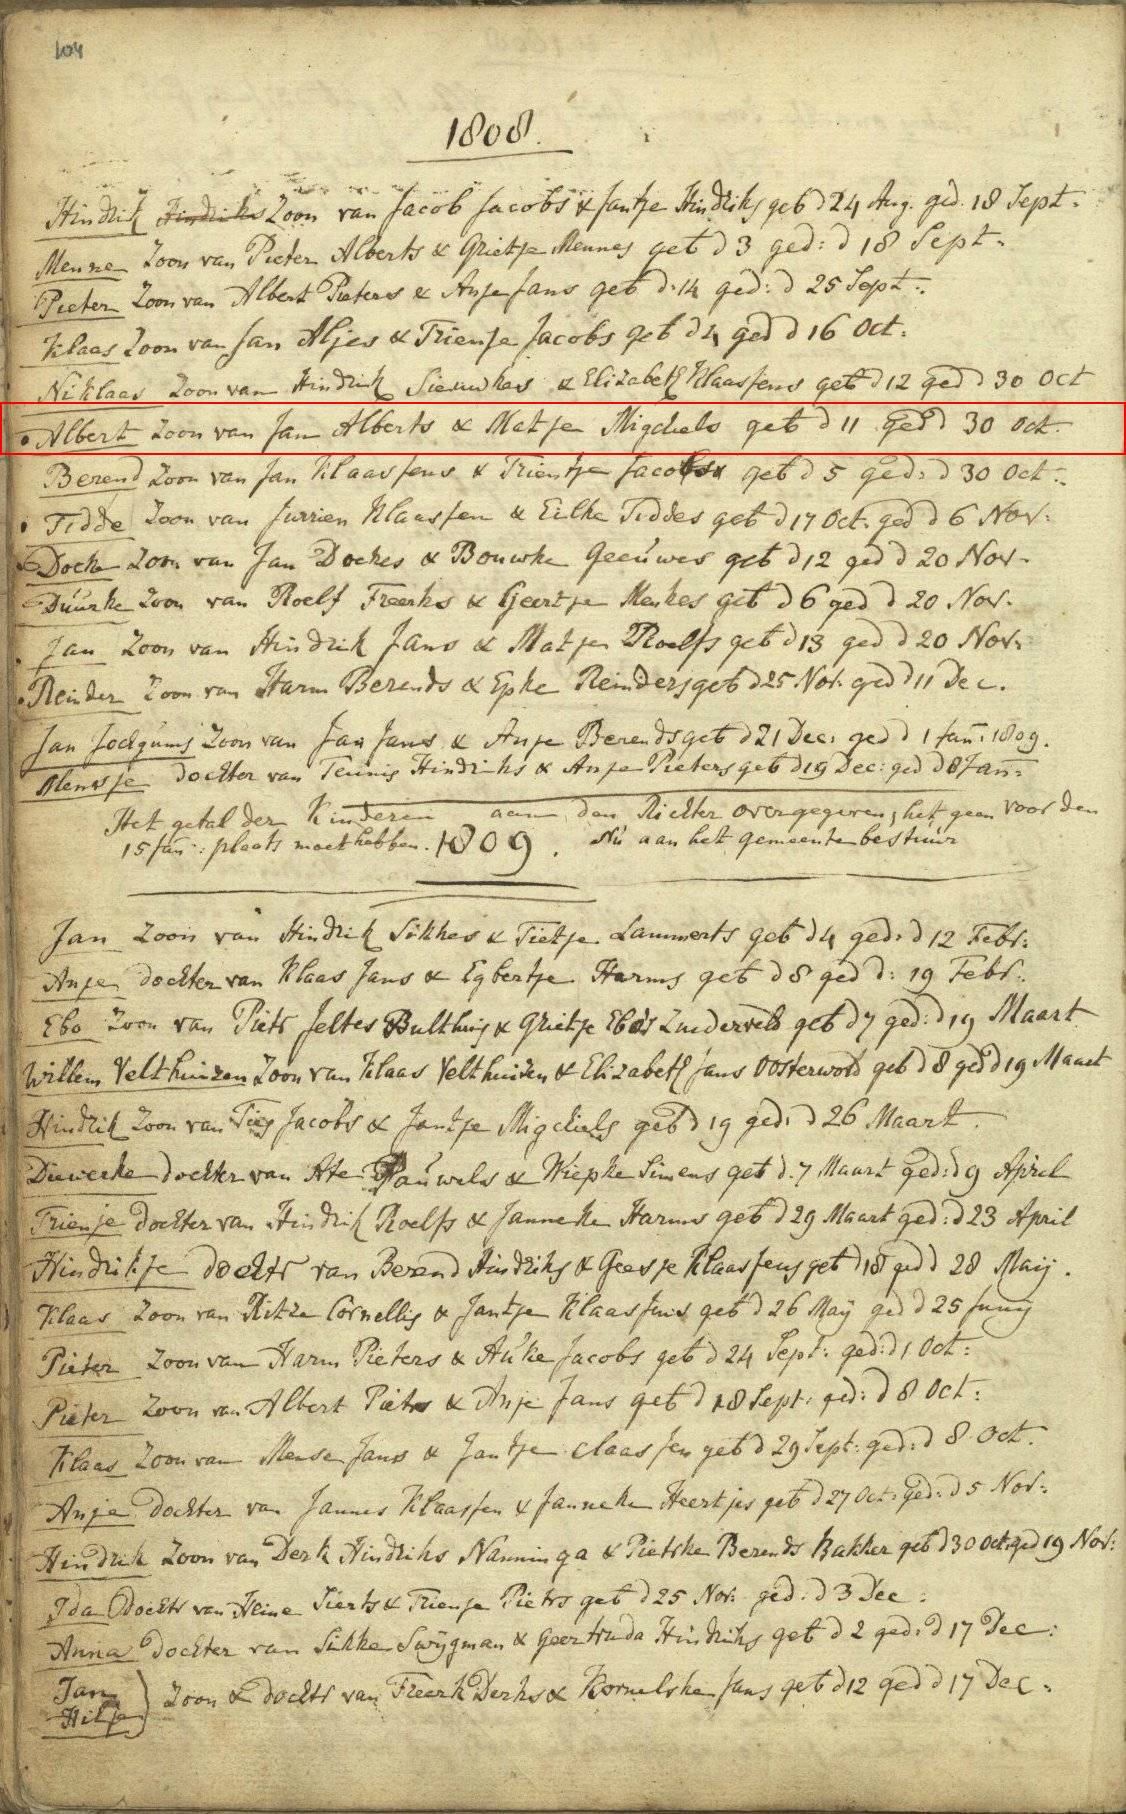 104
1808.
Hindrik Hindriks Zoon van Jacob Jacobs & Jantje Hindriks geb d 24 Aug. ged. 18 Sept:
Menne Zoon van Pieter Alberts & Grietje Mennes geb d 3 ged: d 18 Sept:
Pieter Zoon van Albert Pieters & Anje Jans geb d: 14 ged: d 25 Sept:
Klaas Zoon van Jan Aljes & Trienje Jacobs geb d 4 ged d 16 Oct:
Niklaas Zoon van Hindrik & Elizabeth Klaassens geb d 12 ged d 30 Oct
Albert Zoon van Jan Alberts & Matje Migchels geb d 11 ged d 30 Oct.
Berend Zoon van Jan Klaassens & Trientje Jacobs geb d 5 ged: d 30 Oct:
Tidde Zoon van Jurrien Klaassen & Eilke Tiddes geb d 17 Oct. ged d 6 Nov:
Doeke Zoon van Jan Doekes & Bouwke Geeuwes geb d 12 ged d 20 Nov.
Duurke Zoon van Roelf Freerks & Geertje Menkes geb d 6 ged d 20 Nov.
Jan Zoon van Hindrik Jans & Matje Roelfs geb d 13 ged d 20 Nov:
Reinder Zoon van Harm Berends & Epke Reinders geb d 25 Nov. ged d 11 Dec.
Jan Jochgums Zoon van Jan Jans & Anje Berends geb d 21 Dec: ged d 1 Jan: 1809.
Menssje dochter van Teunis Hindriks & Anje Pieters geb d 19 Dec: ged d 8 Jan:
Het getal der Kinderen aan den Richter overgegeven, het geen voor den
15 Jan: plaats moet hebben. 1809. Nu aan het gemeente bestuur
Jan Zoon van Hindrik Sikkes & Tietje Lammerts geb d 4 ged: d 12 Febr:
Anje dochter van Klaas Jans & Egbertje Harms geb d 8 ged d: 19 Febr:
Ebo Zoon van Pietr Jeltes Bulthuis & Grietje Ebo's Zuiderveld geb d 7 ged: d 19 Maart
Willem Velthuizen Zoon van Klaas Velthuizen & Elizabeth Jans Oosterwold geb d 8 ged d 19 Maart
Hindrik Zoon van Ties Jacobs & Jantje Migchels geb d 19 ged: d 26 Maart.
Diewerke dochter van Ate Pauwels & Wiepke Simens geb d. 7 Maart ged: d 9 April
Trienje dochter van Hindrik Roelfs & Janneke Harms geb d 29 Maart ged: d 23 April
Hindrikje dochtr van Berend Hindriks & Geesje Klaassens geb d 18 ged d 28 Maij.
Klaas Zoon van Ritze Cornellis & Jantje Klaassens geb d 26 Maij ged d 25 Junij
Pieter Zoon van Harm Pieters & Auke Jacobs geb d 24 Sept: ged: d 1 Oct:
Pieter Zoon van Albert Pietrs & Anje Jans geb d 18 Sept: ged: d 8 Oct:
Klaas Zoon van Mense Jans & Jantje Claassen geb d 29 Sept: ged: d 8 Oct.
Anje Dochter van Jannes Klaassen & Janneke Heertjes geb d 27 Oct: ged: d 5 Nov:
Hindrik Zoon van Derk Hindriks Nanninga & Pietske Berends Bakker geb d 30 Oct: ged 19 Nov:
Ida Dochtr van Heine Sierts & Trienje Pietrs geb d 25 Nov: ged: d 3 Dec:
Anna Dochter van Sikke Swijgman & Geertruda Hindriks geb d 2 ged: d 17 Dec:
Jan
Hilje } Zoon & dochtr van Freerk Derks & Kornelske Jans geb d 12 ged d 17 Dec: